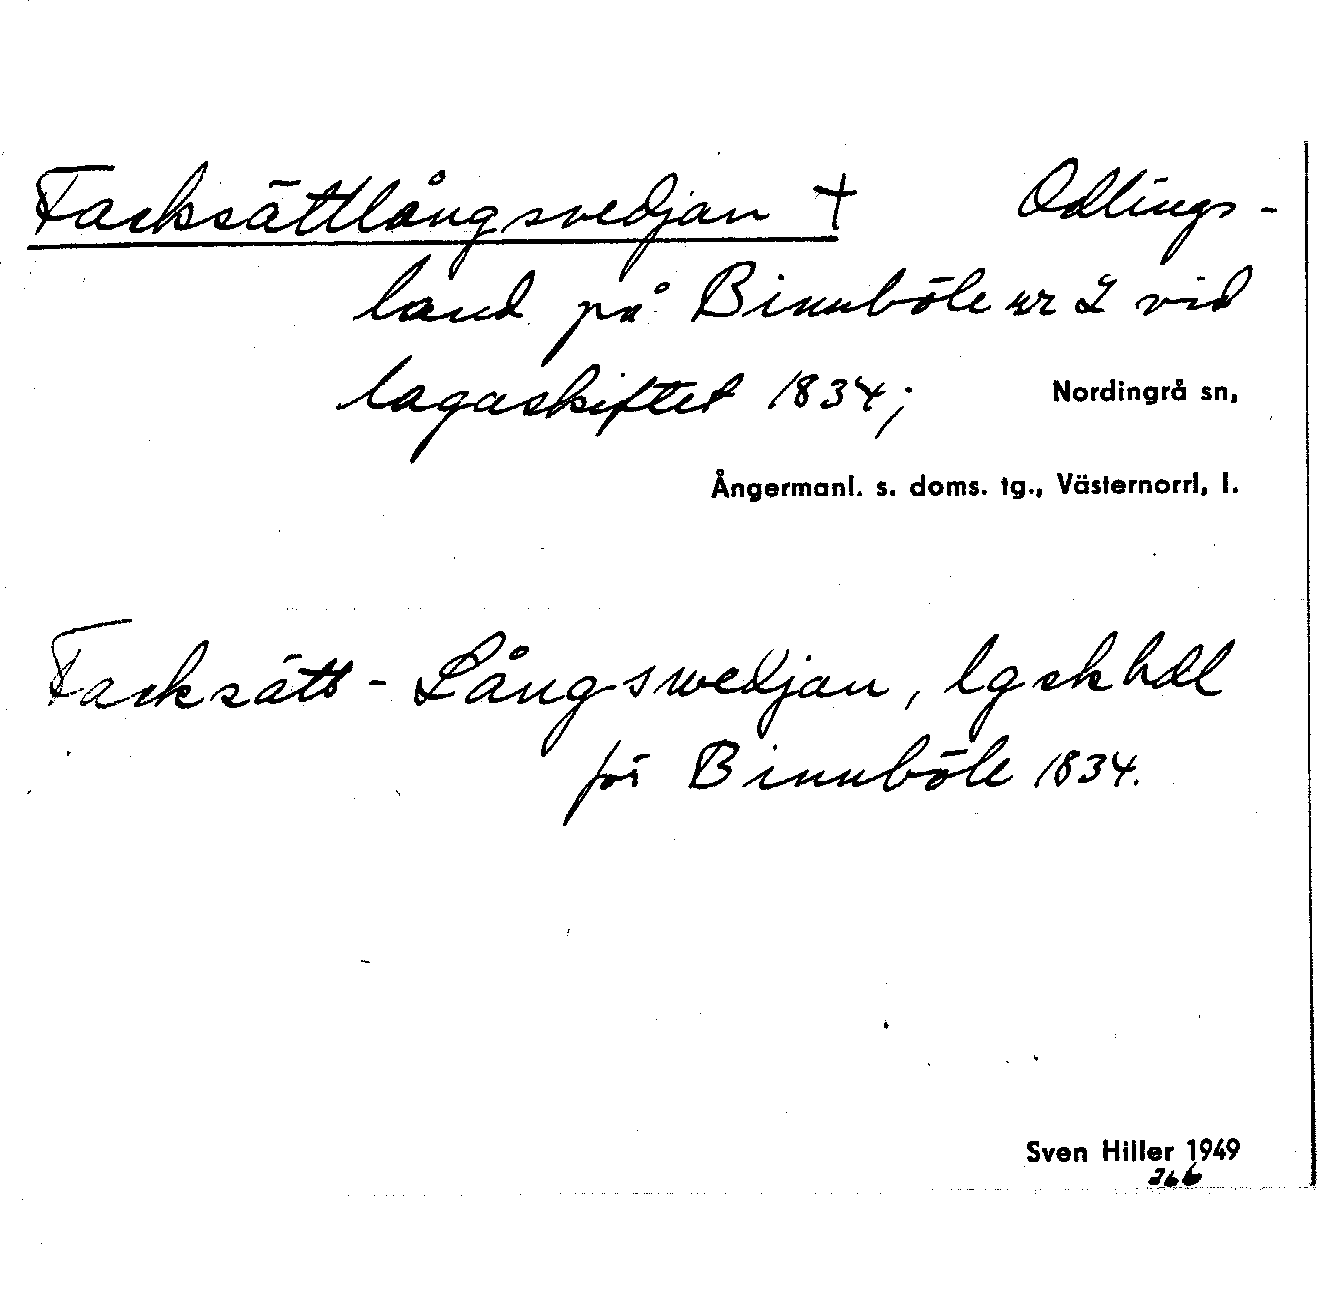 Facksättlångsvedjan † Odlings-
land på Binnböle nr 2 vid
lagaskiftet 1834; Nordingrå sn,
Ångermanl. s. doms. tg., Västernorrl, l.
Facksätt-Långswedjan, lgskhdl
för Binnböle 1834.
Sven Hiller 1949
266